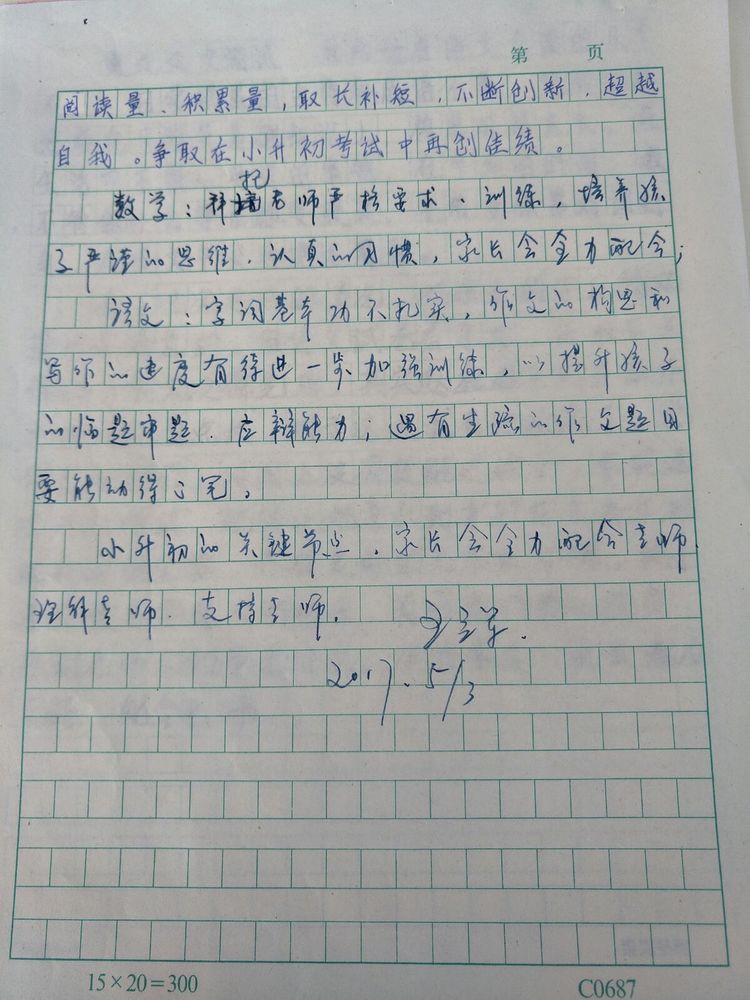 第 页
阅读量、积累量，取长补短，不断创新，超越
自我。争取在小升初考试中再创佳绩。
数学：老师严格要求、训练，培养孩
子严谨的思维，认真的习惯，家长会全力配合；
语文：字词基本功不扎实，作文的构思和
写作的速度有待进一步加强训练，以提升孩子
的临题审题、应辩能力；遇有生疏的作文题目
要能动得了笔。
小升初的关键节点，家长会全力配合老师、
理解老师、支持老师。
2017.5/3
15×20=300
C0687